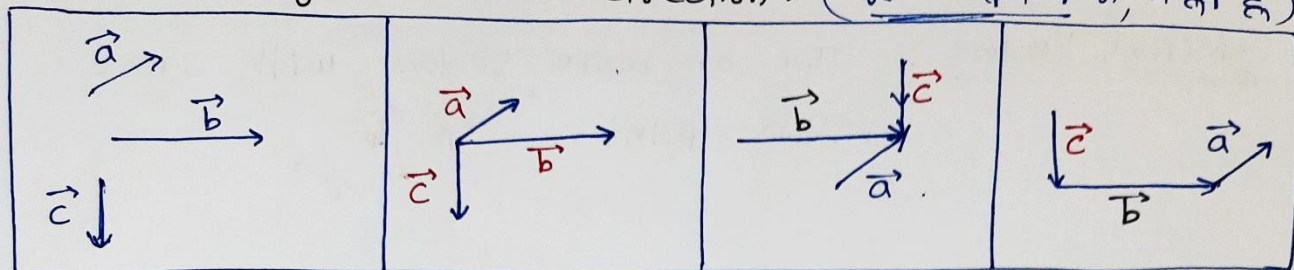 a⃗
b⃗
c⃗
a⃗
b⃗
c⃗
b⃗
c⃗
a⃗
c⃗
a⃗
b⃗